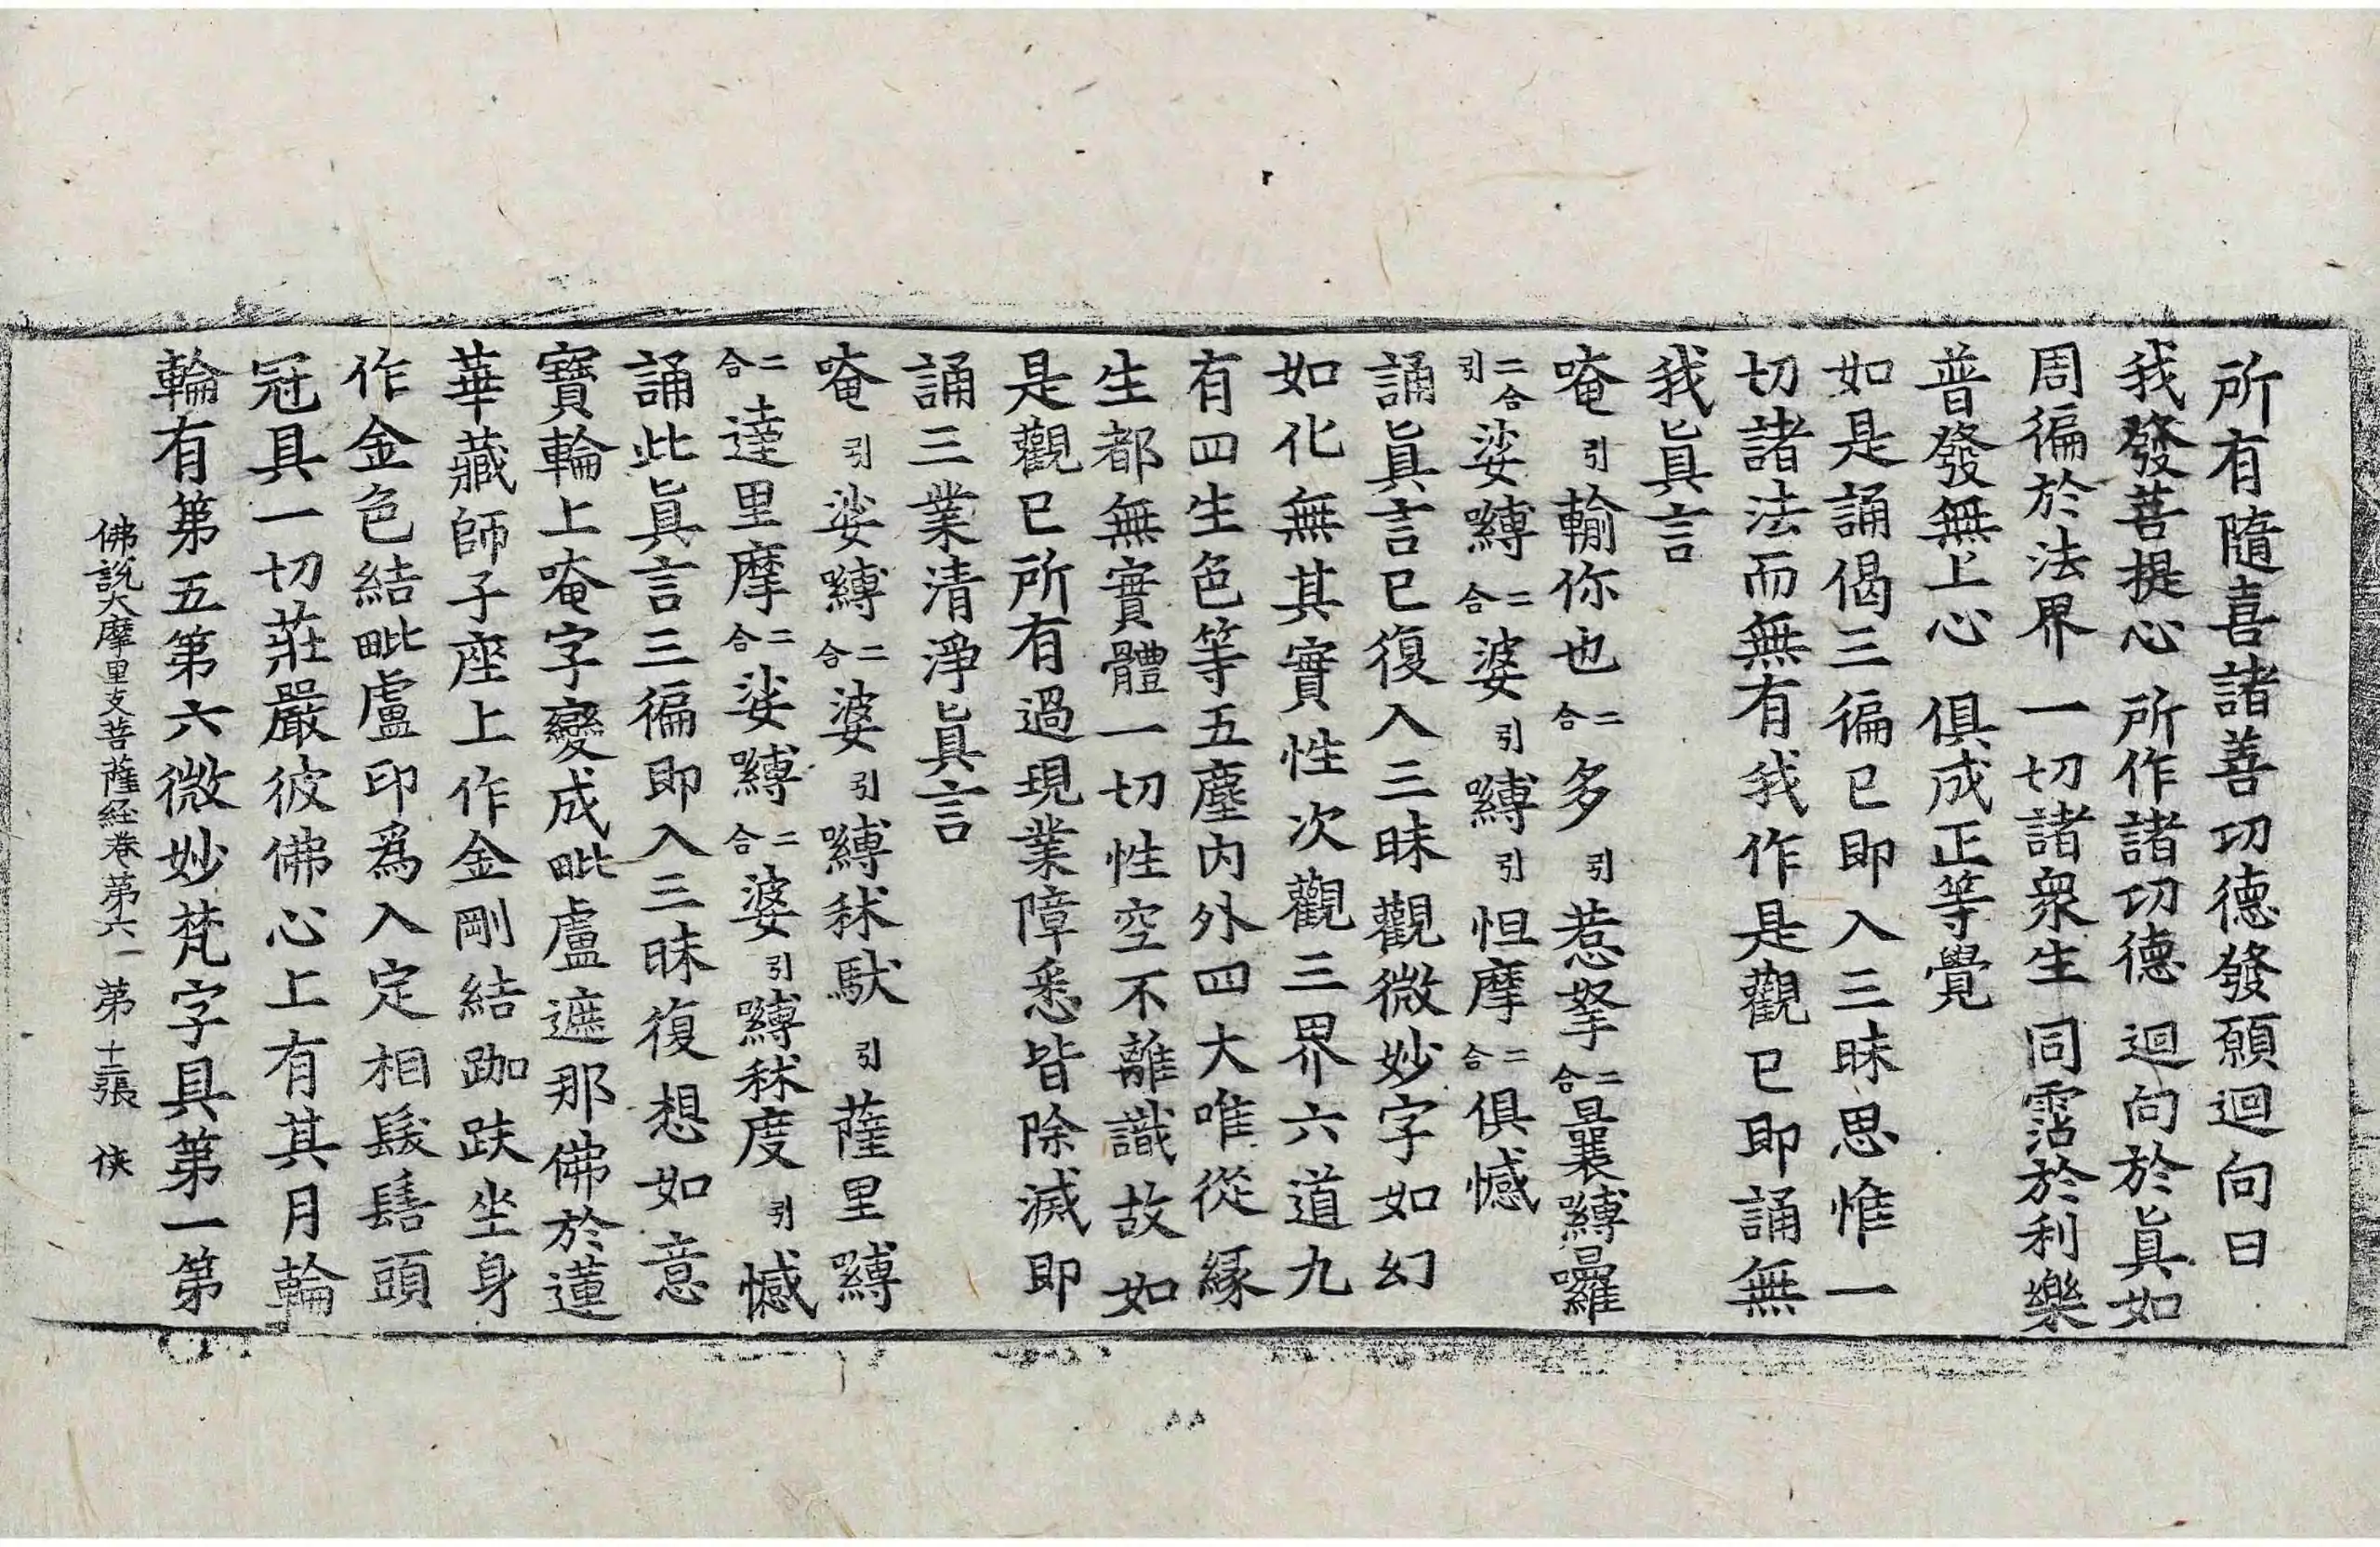 所有隨喜諸善功德發願迴向曰
我發菩提心 所作諸功德 迴向於眞如
周徧於法界 一切諸衆生 同霑於利樂
普發無上心 俱成正等覺
如是誦偈三徧已即入三昧思惟一
切諸法而無有我作是觀已即誦無
我眞言
唵引輸你也二合多引惹拏二合曩嚩囉
二合引娑嚩二合婆引嚩引怛摩二合俱憾
誦眞言已復入三昧觀微妙字如幻
如化無其實性次觀三界六道九
有四生色等五塵内外四大唯從緣
生都無實體一切性空不離識故如
是觀已所有過現業障悉皆除滅即
誦三業清淨眞言
唵引娑嚩二合婆引嚩秫馱引薩里嚩
二合達里摩二合娑嚩二合婆引嚩秫度引憾
誦此眞言三徧即入三昧復想如意
寶輪上唵字變成毗盧遮那佛於蓮
華藏師子座上作金剛結跏趺坐身
作金色結毗盧印爲入定相髮髻頭
冠具一切莊嚴彼佛心上有其月輪
輪有第五第六微妙梵字具第一第
佛說大摩里支菩薩經卷第六 第十二張 俠